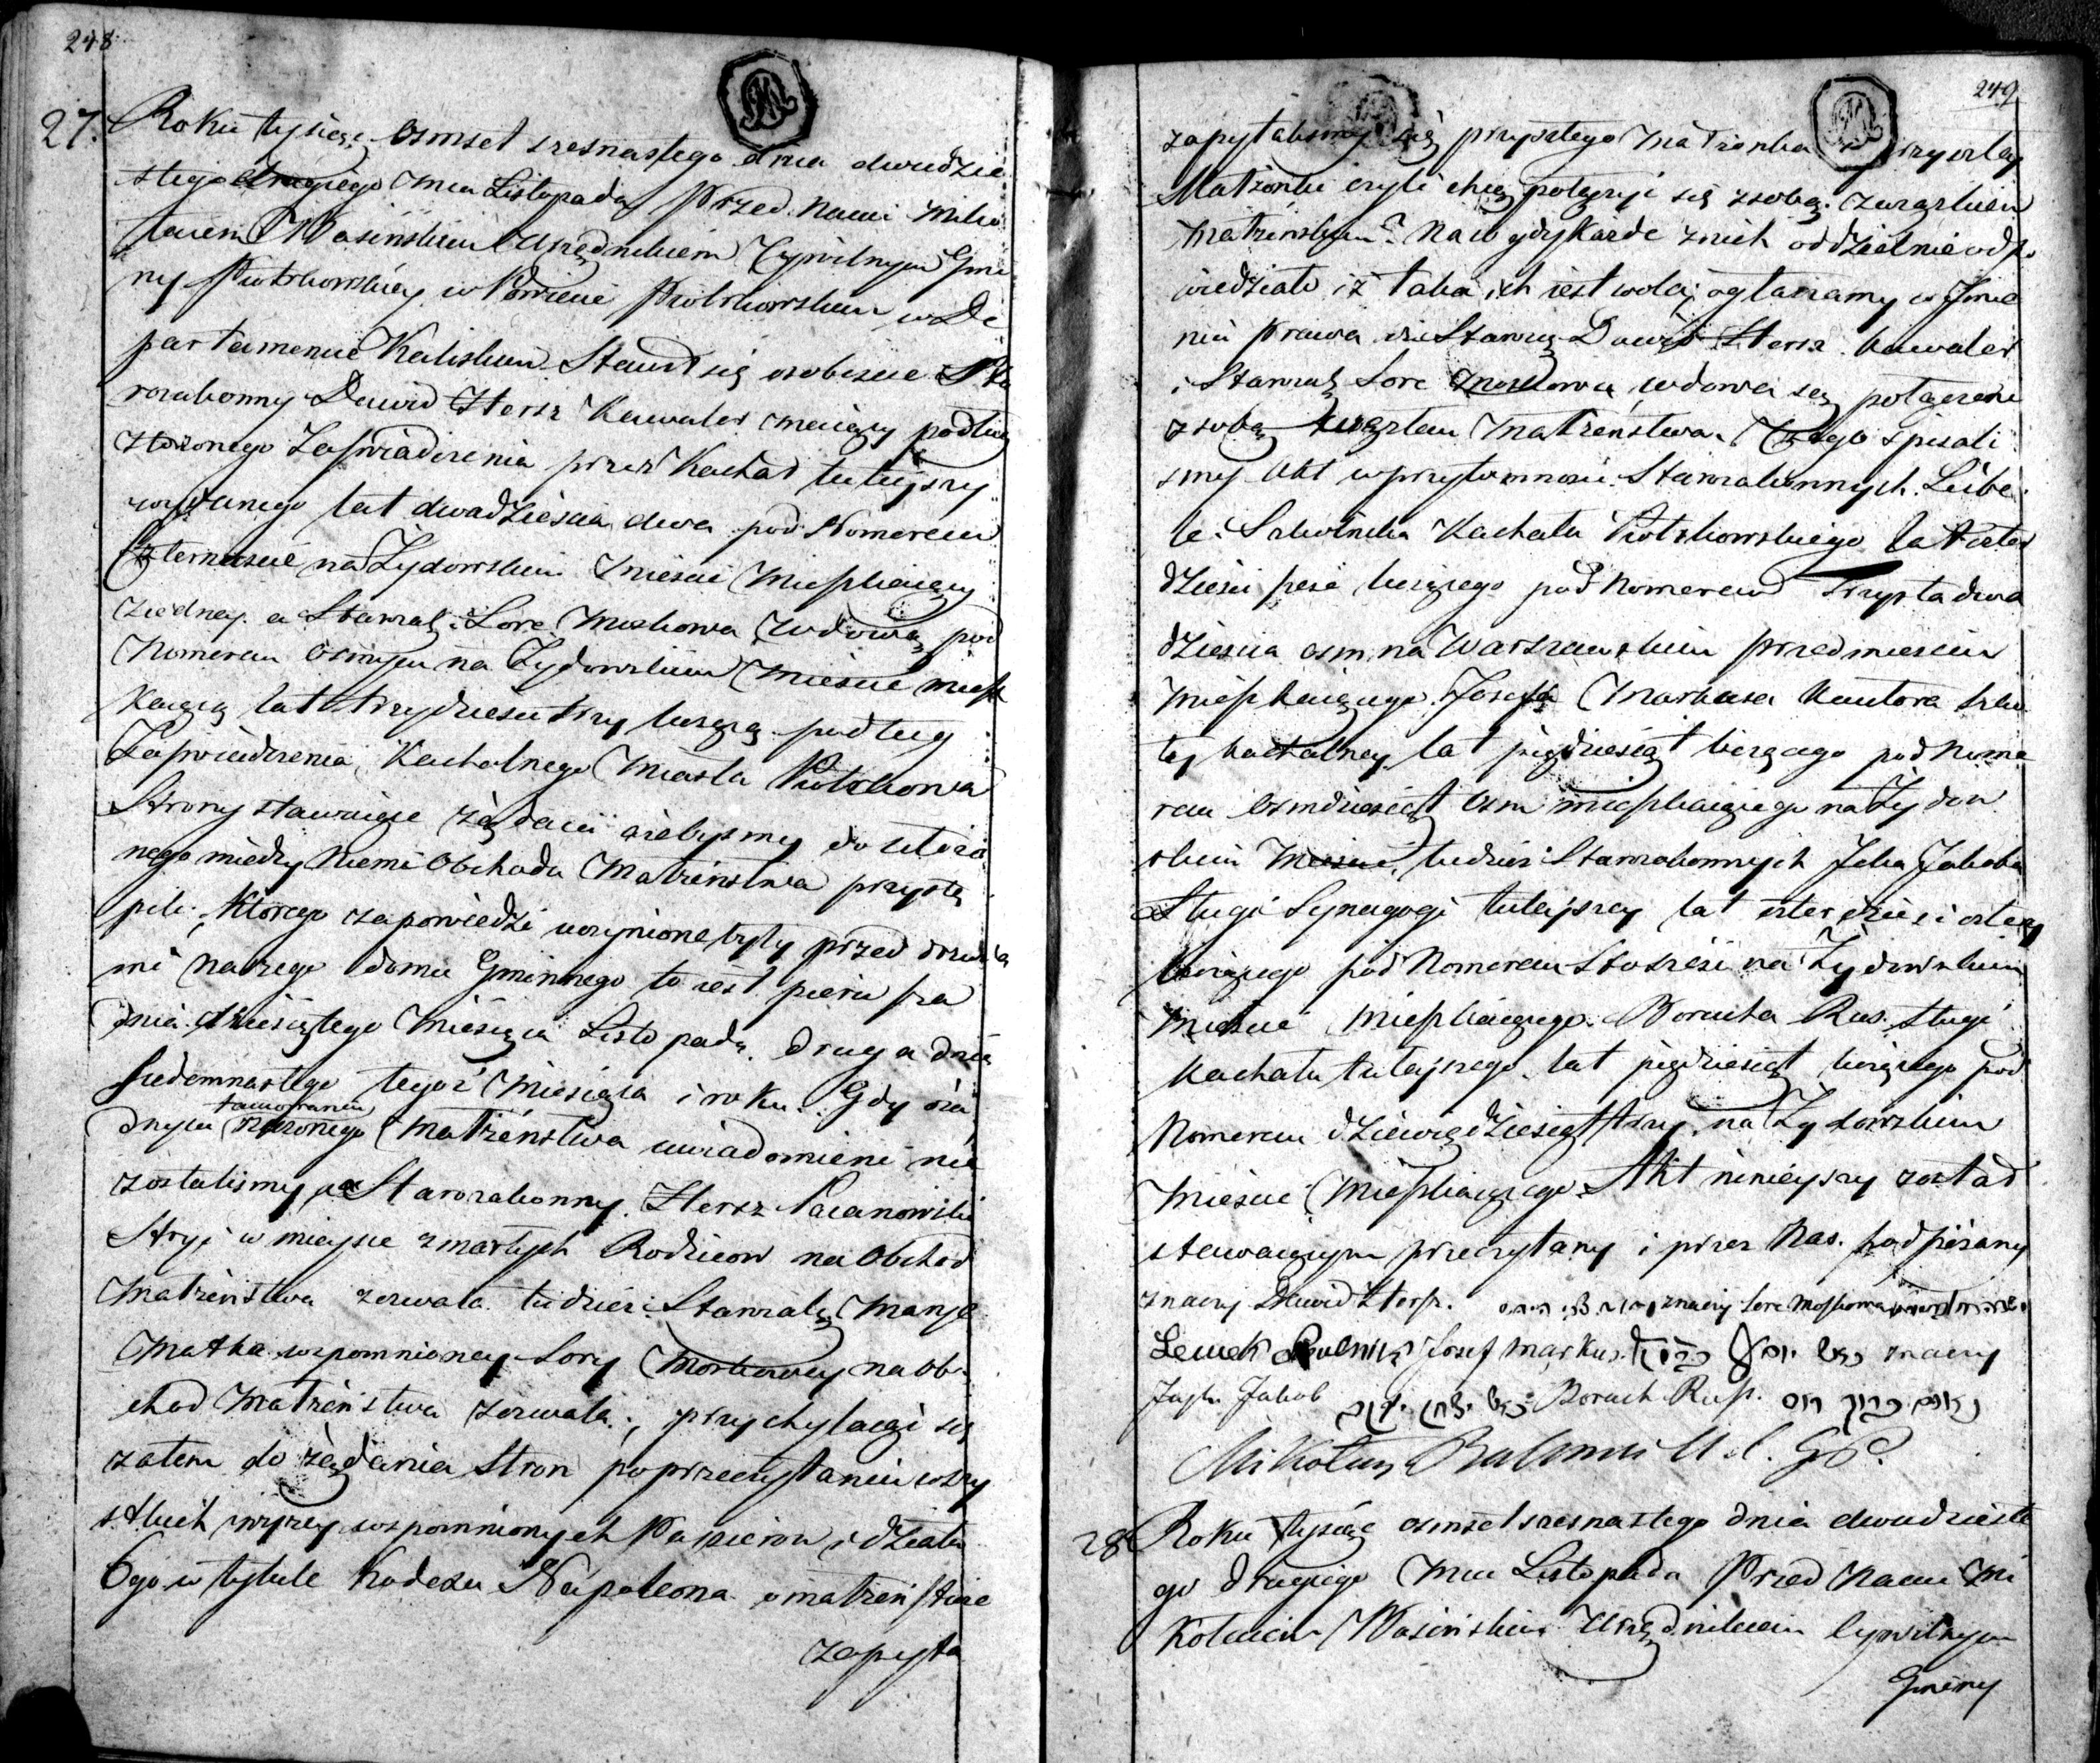 248
27. Roku tysiąc osmset szesnastego dnia dwudzie
stego drugiego Mca Listopada Przed Nami Miko
łaiem Wasińskim Urzędnikiem Cywilnym Gmi
ny Piotrkowskiey w Powiecie Piotrkowskim w De
partamencie Kaliskim Stawił się osobiscie Sta
rozakonny Dawid Hersz Kawaler maiący podług
złożonego Zaswiadczenia przez Kachał tuteyszy
wydanego lat dwadzieścia dwa pod Nomerem
Czternascie na Żydowskim Miescie Mieszkaiący
z iedney a Starozak: Lore Moskowa Wdowa pod
Nomerem osmym na Żydowskim Miescie miesz
kaiąca lat trzydziesci trzy licząca podług
Zaswiadczenia Kachalnego Miasta Piotrkowa
Strony stawaiące żądaią ażebysmy do ułożo
nego między Niemi Obchodu Małżeństwa przystą
pili, którego zapowiedzi uczynione były przed drzwia
mi naszego domu Gminnego to iest pierwsza
dnia dziesiątego Miesiąca Listopada, druga dnia
siedemnastego tegoż Miesiąca i roku. Gdy o ża
tamowaniu
dnym rzeczonego Małżeństwa uwiadomieni nie
zostalismy, a Starozakonny Hersz Pacanowski
Stryi w mieysce zmarłych Rodzicow na Obchod
Małżeństwa zezwala tudzież Starozak: Marya
Matka wspomnioney Lory Moskowey na ob
chod Małżeństwa zezwala, przychylaiąc się
zatem do żądania Stron po przeczytaniu wszy
stkich wyżey wspomnionych Papierow i działu
6go w tytule Kodexu Napoleona o małżeństwie
zapyta
249
zapytalismy się przyszłego Małżonka i przyszłey
Małżonki czyli chcą połączyć się z sobą związkiem
małżeńskim? Na co gdy każde z nich oddzielnie odpo
wiedziało iż taka ich iest wola; ogłaszamy w Imie
niu prawa iż Starozak: Dawid Hersz kawaler
i Starozak: Lore Moskowa wdowa są połączeni
z sobą węzłem Małżeństwa. Czego spisali
smy Akt w przytomnosci Starozakonnych Leibe
le Szkolnika Kachału Piotrkowskiego lat czter
dziesci pięć liczącego pod Nomerem Trzysta dwa
dziescia osm na Warszawskim przedmiesciu
mieszkaiącego. Josefa Markusa Kantora szko
ły kachalney lat pięćdziesiąt liczącego pod Nome
rem osmdziesiąt osm mieszkaiącego na Żydow
skim Miescie, tudzież Starozakonnych Jcka Jakoba
Sługi Synagogi tuteyszey lat czterdziesci cztery
liczącego pod Nomerem Sto szesć na Żydowskim
Miescie Mieszkaiącego. Borucha Rus. sługi
Kachału tuteyszego lat pięćdziesiąt liczącego pod
Nomerem dziewięćdziesiąt trzy na Żydowskim
Miescie Mieszkaiącego. Akt ninieyszy został
stawaiącym przeczytany i przez Nas podpisany
znaczy Dawid Hersz. znaczy Lore Moszkowa
Lewek Josef Markus. znaczy
Jakob Boruch Rusz. נאום ברוך רוס
Mikołay G. P.
28 Roku tysiąc osmset szesnastego dnia dwudzieste
go drugiego Mca Listopada Przed Nami Mi
kołaiem Wasińskim Urzędnikiem Cywilnym
Gminy